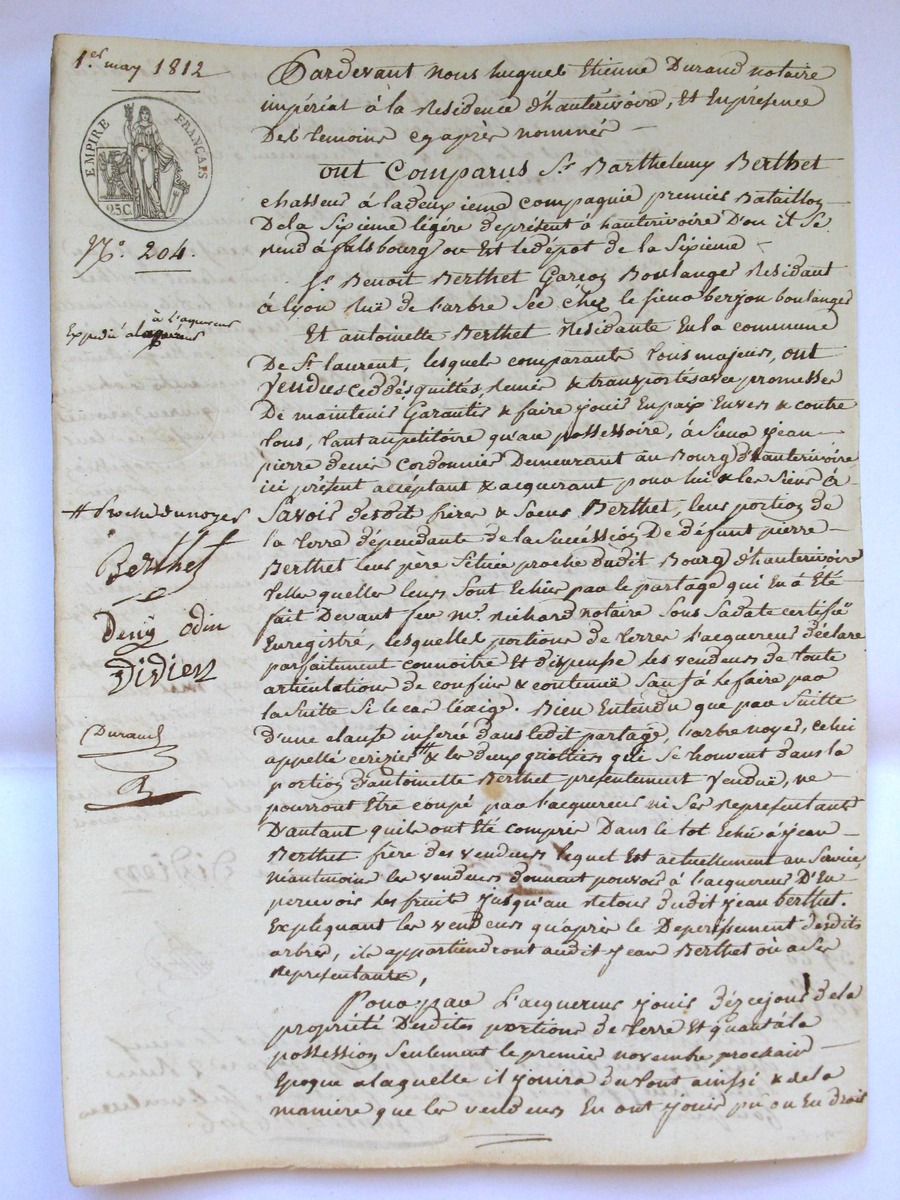 1.er may 1812
EMPIRE FRANÇAIS
25 C.
N.o 204.
à l'aquereur
Expédié
# proche du noyer
Berthet
Deny odin
Didier
Durand
Pardevant nous hugues Etienne Durand notaire
impérial à la Residence d'hauterivoire, Et En présence
Des temoins cy après nommés —
ont Comparus Sr. Barthelemy Berthet
chasseur à la deuxieme compagnie premier Bataillon
De la Sixieme légère de présent à hauterivoire D'ou il Se
rend à falsbourg ou Est le dépot de la Sixieme
Sr. Benoît Berthet Garçon Boulanger Residant
à Lyon Ruë de l'arbre Sec chez le sieur berjon boulanger
Et antoinette Berthet Residante En la commune
De St. laurent, lesquels comparants tous majeurs, ont
Vendus ceddés quittés remis & transportés avec promesses
De maintenir Garantir & faire jouir En paix Envers & contre
tous, tant au petitoire qu'au possessoire, à Sieur jean
pierre denis Cordonnier Demeurant au Bourg d'hauterivoire
ici présent accéptant & acquerant pour lui & les Siens à
Savoir desdit frères & Sœur Berthet, leur portion de
la terre dépendante de la Succéssion De défunt pierre
Berthet leur pere Située proche dudit Bourg d'hauterivoire
telle quelle leurs Sont Echus par le partage qui En à Eté
fait Devant feu me. richard notaire Sous Sa date certifié
Enregistré, lesquelles portions de terres l'acquereur déclare
parfaitement connoitre Et dispense les vendeurs de toute
articulations de confins & contenuë Sauf à le faire par
la Suite Si le cas l'éxige. Bien Entendu que par Suitte
d'une clause inserée dans ledit partage, l'arbre noyer, celui
appellé cerizier # & les deux qui Se trouvent dans la
portion d'antoinette Berthet présentement Venduë, ne
pourront être coupé par l'acquereur ni Ses représentant
D'autant qu'ils ont Eté compris Dans le lot Echu à jean
Berthet frère des vendeurs lequel Est actuellement au Service,
néantmoins les vendeurs donnent pouvoir à l'acquereur D'En
percevoir les fruit jusqu'au retour dudit jean berthet.
Expliquant les vendeurs qu'après le Deperissement desdits
arbres, ils appartiendront audit jean Berthet où à Ses
représentants,
Pour par L'acquereur jouir dèz ce jour de la
propriété D'esdites portions de terre Et quant à la
possession Seulement le premier novembre prochain
Epoque a laquelle il jouira du tout ainssi & de la
maniere que les vendeurs En ont joui pu ou En droit